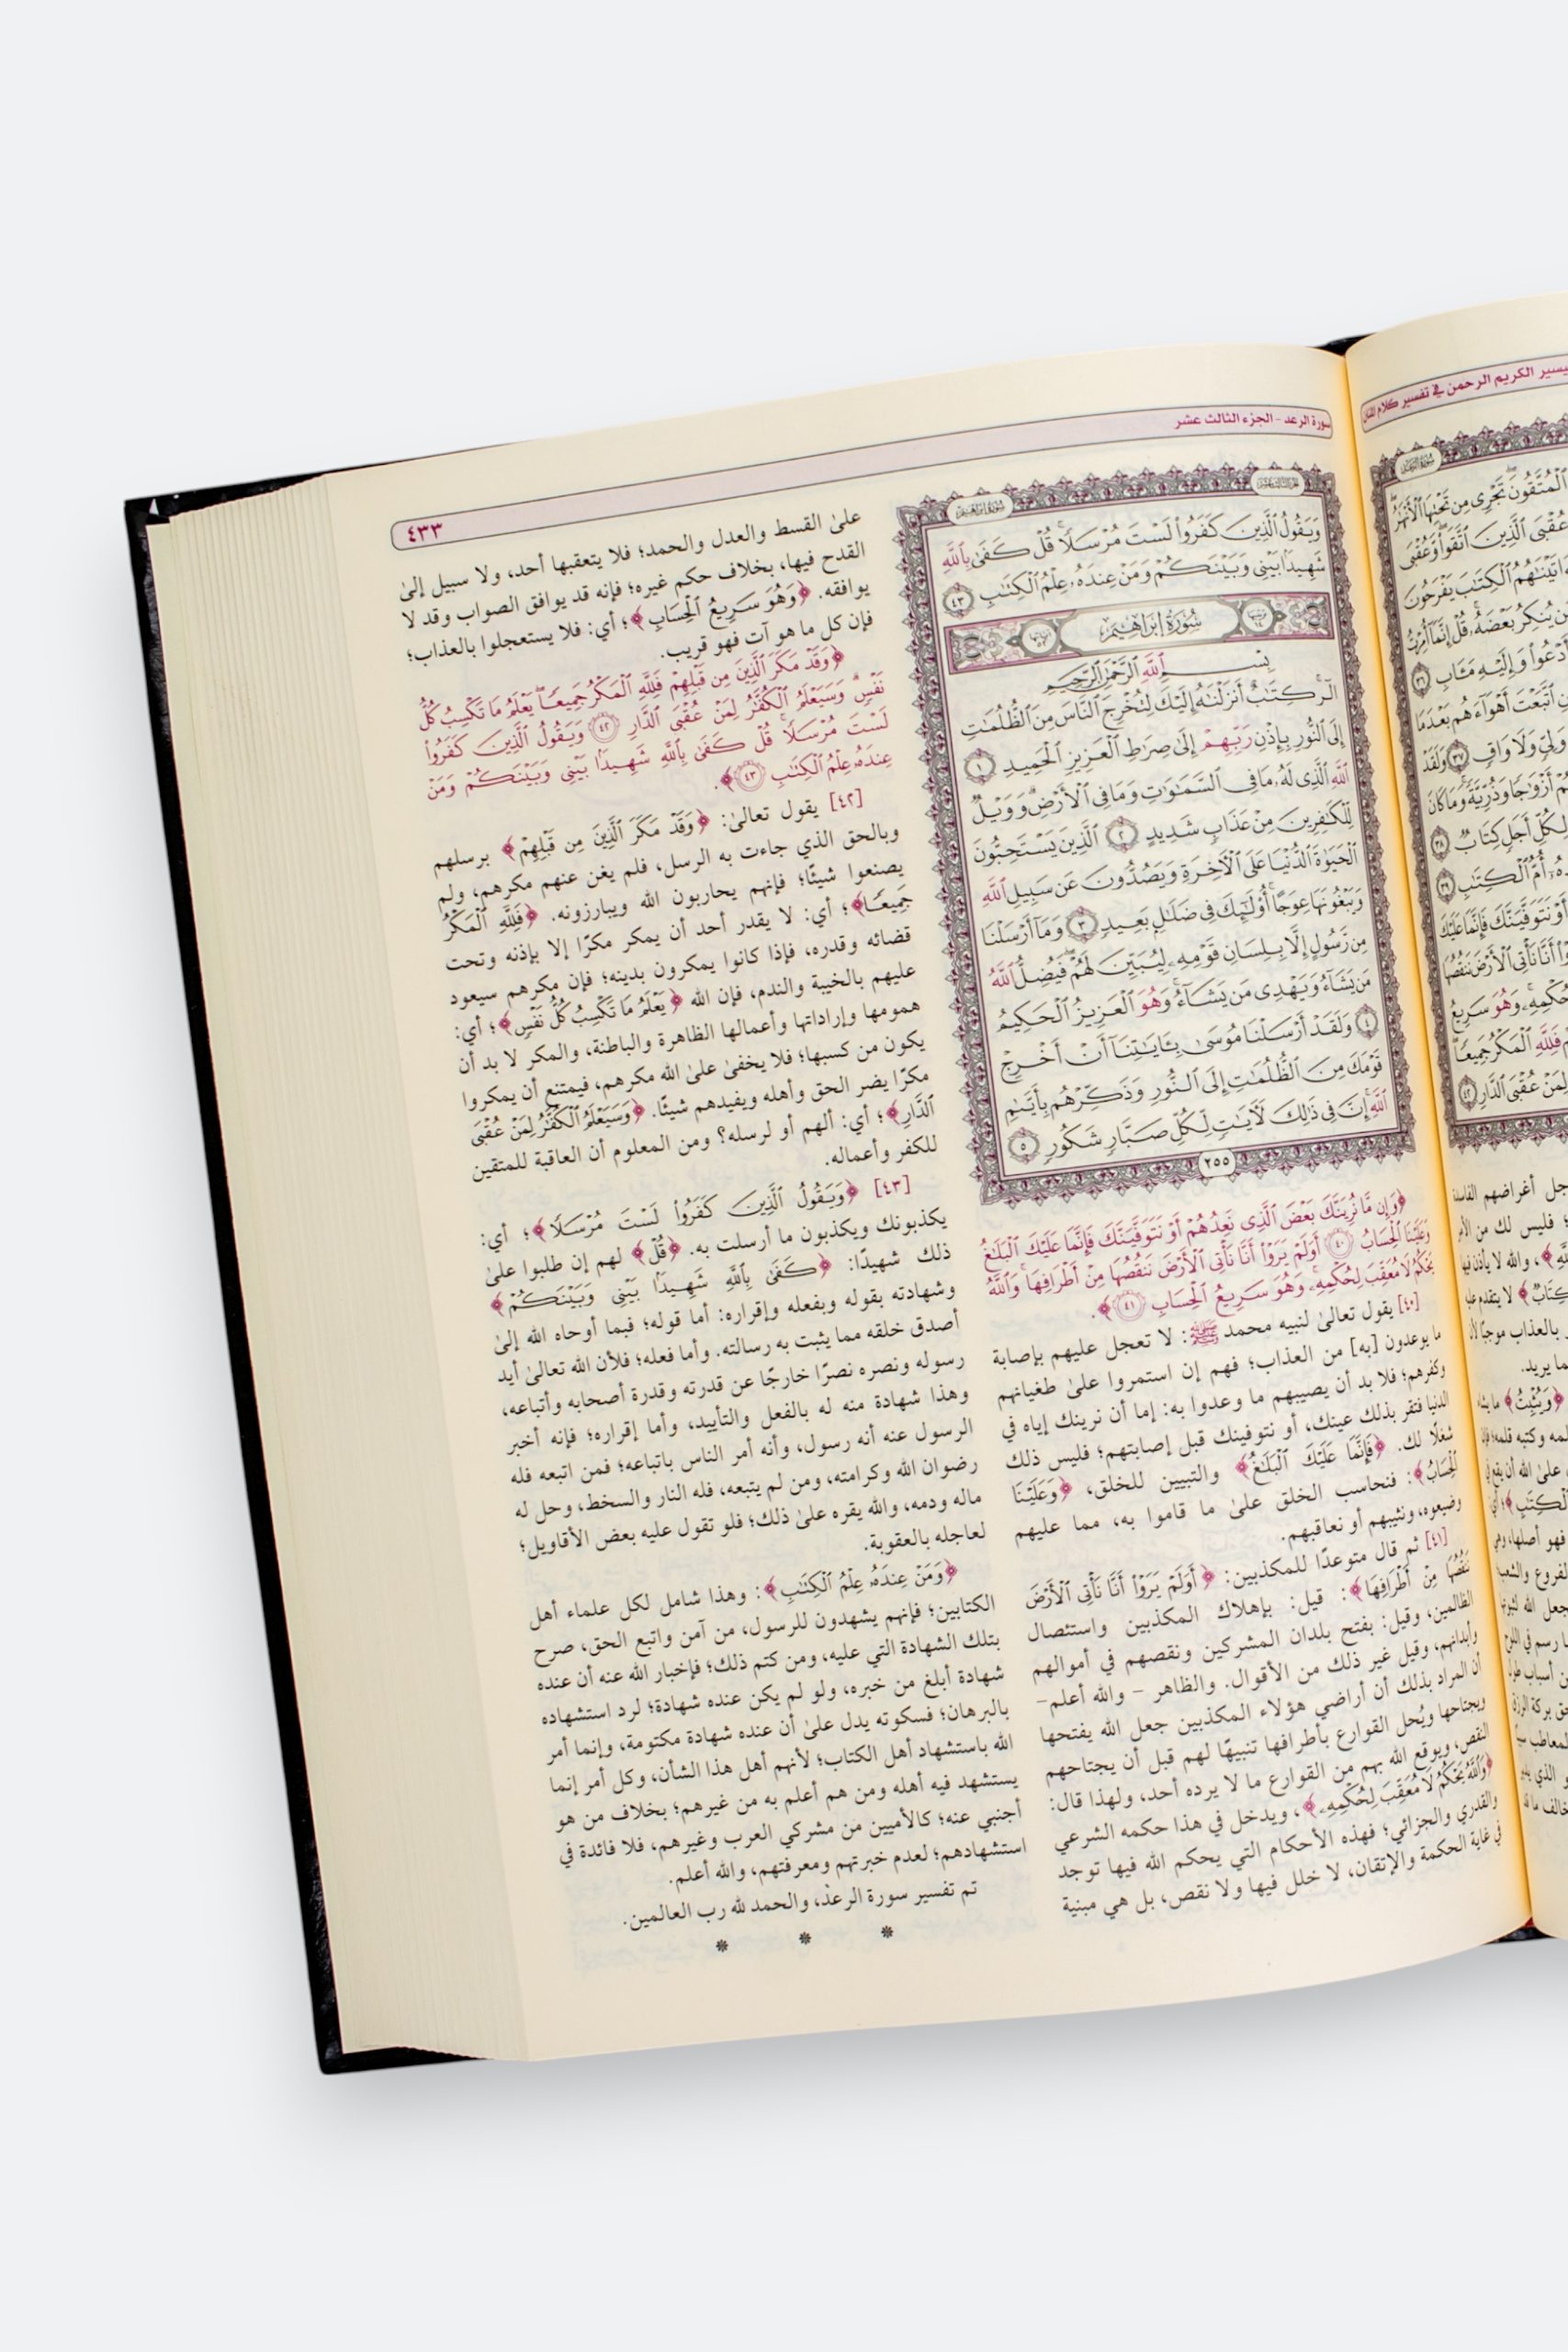 تيسير الكريم الرحمن في تفسير كلام المنان
ٱلْمُتَّقُونَ تَجْرِى مِن تَحْتِهَا ٱلْأَنْهَٰرُ
عُقْبَى ٱلَّذِينَ ٱتَّقَوا۟ وَّعُقْبَى
ءَاتَيْنَٰهُمُ ٱلْكِتَٰبَ يَفْرَحُونَ
مَن يُنكِرُ بَعْضَهُۥ قُلْ إِنَّمَآ أُمِرْتُ
أَدْعُوا۟ وَإِلَيْهِ مَـَٔابِ ٣٦
ٱتَّبَعْتَ أَهْوَآءَهُم بَعْدَمَا
وَلِىٍّ وَلَا وَاقٍ ٣٧ وَلَقَدْ
أَزْوَٰجًا وَذُرِّيَّةً وَمَا كَانَ
لِكُلِّ أَجَلٍ كِتَابٌ ٣٨
أُمُّ ٱلْكِتَٰبِ ٣٩
أَوْ نَتَوَفَّيَنَّكَ فَإِنَّمَا عَلَيْكَ
أَنَّا نَأْتِى ٱلْأَرْضَ نَنقُصُهَا
لِحُكْمِهِۦ وَهُوَ سَرِيعُ
فَلِلَّهِ ٱلْمَكْرُ جَمِيعًا
لِمَنْ عُقْبَى ٱلدَّارِ ٤٢
سورة الرعد - الجزء الثالث عشر
٤٣٣
وَيَقُولُ ٱلَّذِينَ كَفَرُوا۟ لَسْتَ مُرْسَلًا ۚ قُلْ كَفَىٰ بِٱللَّهِ
شَهِيدًۢا بَيْنِى وَبَيْنَكُمْ وَمَنْ عِندَهُۥ عِلْمُ ٱلْكِتَٰبِ ٤٣
سُورَةُ إِبْرَاهِيمَ
بِسْمِ ٱللَّهِ ٱلرَّحْمَٰنِ ٱلرَّحِيمِ
الٓر ۚ كِتَٰبٌ أَنزَلْنَٰهُ إِلَيْكَ لِتُخْرِجَ ٱلنَّاسَ مِنَ ٱلظُّلُمَٰتِ
إِلَى ٱلنُّورِ بِإِذْنِ رَبِّهِمْ إِلَىٰ صِرَٰطِ ٱلْعَزِيزِ ٱلْحَمِيدِ ١
ٱللَّهِ ٱلَّذِى لَهُۥ مَا فِى ٱلسَّمَٰوَٰتِ وَمَا فِى ٱلْأَرْضِ ۗ وَوَيْلٌ
لِّلْكَٰفِرِينَ مِنْ عَذَابٍ شَدِيدٍ ٢ ٱلَّذِينَ يَسْتَحِبُّونَ
ٱلْحَيَوٰةَ ٱلدُّنْيَا عَلَى ٱلْـَٔاخِرَةِ وَيَصُدُّونَ عَن سَبِيلِ ٱللَّهِ
وَيَبْغُونَهَا عِوَجًا ۚ أُو۟لَٰٓئِكَ فِى ضَلَٰلٍۭ بَعِيدٍ ٣ وَمَآ أَرْسَلْنَا
مِن رَّسُولٍ إِلَّا بِلِسَانِ قَوْمِهِۦ لِيُبَيِّنَ لَهُمْ ۖ فَيُضِلُّ ٱللَّهُ
مَن يَشَآءُ وَيَهْدِى مَن يَشَآءُ ۚ وَهُوَ ٱلْعَزِيزُ ٱلْحَكِيمُ
٤ وَلَقَدْ أَرْسَلْنَا مُوسَىٰ بِـَٔايَٰتِنَآ أَنْ أَخْرِجْ
قَوْمَكَ مِنَ ٱلظُّلُمَٰتِ إِلَى ٱلنُّورِ وَذَكِّرْهُم بِأَيَّىٰمِ
ٱللَّهِ ۚ إِنَّ فِى ذَٰلِكَ لَـَٔايَٰتٍ لِّكُلِّ صَبَّارٍ شَكُورٍ ٥
٢٥٥
﴿وَإِن مَّا نُرِيَنَّكَ بَعْضَ ٱلَّذِى نَعِدُهُمْ أَوْ نَتَوَفَّيَنَّكَ فَإِنَّمَا عَلَيْكَ ٱلْبَلَٰغُ
وَعَلَيْنَا ٱلْحِسَابُ ٤٠ أَوَلَمْ يَرَوْا۟ أَنَّا نَأْتِى ٱلْأَرْضَ نَنقُصُهَا مِنْ أَطْرَافِهَا ۚ وَٱللَّهُ
يَحْكُمُ لَا مُعَقِّبَ لِحُكْمِهِۦ ۚ وَهُوَ سَرِيعُ ٱلْحِسَابِ ٤١﴾.
[٤٠] يقول تعالىٰ لنبيه محمد ﷺ: لا تعجل عليهم بإصابة
ما يوعدون [به] من العذاب؛ فهم إن استمروا علىٰ طغيانهم
وكفرهم؛ فلا بد أن يصيبهم ما وعدوا به: إما أن نرينك إياه في
الدنيا فتقر بذلك عينك، أو نتوفينك قبل إصابتهم؛ فليس ذلك
شغلًا لك. ﴿فَإِنَّمَا عَلَيْكَ ٱلْبَلَٰغُ﴾ والتبيين للخلق، ﴿وَعَلَيْنَا
ٱلْحِسَابُ﴾: فنحاسب الخلق علىٰ ما قاموا به، مما عليهم
وضيعوه، ونثيبهم أو نعاقبهم.
[٤١] ثم قال متوعدًا للمكذبين: ﴿أَوَلَمْ يَرَوْا۟ أَنَّا نَأْتِى ٱلْأَرْضَ
نَنقُصُهَا مِنْ أَطْرَافِهَا﴾: قيل: بإهلاك المكذبين واستئصال
الظالمين، وقيل: بفتح بلدان المشركين ونقصهم في أموالهم
وأبدانهم، وقيل غير ذلك من الأقوال. والظاهر – والله أعلم–
أن المراد بذلك أن أراضي هؤلاء المكذبين جعل الله يفتحها
ويجتاحها ويُحل القوارع بأطرافها تنبيهًا لهم قبل أن يجتاحهم
النقص، ويوقع الله بهم من القوارع ما لا يرده أحد، ولهذا قال:
﴿وَٱللَّهُ يَحْكُمُ لَا مُعَقِّبَ لِحُكْمِهِۦ﴾، ويدخل في هذا حكمه الشرعي
والقدري والجزائي؛ فهذه الأحكام التي يحكم الله فيها توجد
في غاية الحكمة والإتقان، لا خلل فيها ولا نقص، بل هي مبنية
علىٰ القسط والعدل والحمد؛ فلا يتعقبها أحد، ولا سبيل إلىٰ
القدح فيها، بخلاف حكم غيره؛ فإنه قد يوافق الصواب وقد لا
يوافقه. ﴿وَهُوَ سَرِيعُ ٱلْحِسَابِ﴾؛ أي: فلا يستعجلوا بالعذاب؛
فإن كل ما هو آت فهو قريب.
﴿وَقَدْ مَكَرَ ٱلَّذِينَ مِن قَبْلِهِمْ فَلِلَّهِ ٱلْمَكْرُ جَمِيعًا ۖ يَعْلَمُ مَا تَكْسِبُ كُلُّ
نَفْسٍ ۗ وَسَيَعْلَمُ ٱلْكُفَّٰرُ لِمَنْ عُقْبَى ٱلدَّارِ ٤٢ وَيَقُولُ ٱلَّذِينَ كَفَرُوا۟
لَسْتَ مُرْسَلًا ۚ قُلْ كَفَىٰ بِٱللَّهِ شَهِيدًۢا بَيْنِى وَبَيْنَكُمْ وَمَنْ
عِندَهُۥ عِلْمُ ٱلْكِتَٰبِ ٤٣﴾.
[٤٢] يقول تعالىٰ: ﴿وَقَدْ مَكَرَ ٱلَّذِينَ مِن قَبْلِهِمْ﴾ برسلهم
وبالحق الذي جاءت به الرسل، فلم يغن عنهم مكرهم، ولم
يصنعوا شيئًا؛ فإنهم يحاربون الله ويبارزونه. ﴿فَلِلَّهِ ٱلْمَكْرُ
جَمِيعًا﴾؛ أي: لا يقدر أحد أن يمكر مكرًا إلا بإذنه وتحت
قضائه وقدره، فإذا كانوا يمكرون بدينه؛ فإن مكرهم سيعود
عليهم بالخيبة والندم، فإن الله ﴿يَعْلَمُ مَا تَكْسِبُ كُلُّ نَفْسٍ﴾؛ أي:
همومها وإراداتها وأعمالها الظاهرة والباطنة، والمكر لا بد أن
يكون من كسبها؛ فلا يخفىٰ علىٰ الله مكرهم، فيمتنع أن يمكروا
مكرًا يضر الحق وأهله ويفيدهم شيئًا. ﴿وَسَيَعْلَمُ ٱلْكُفَّٰرُ لِمَنْ عُقْبَى
ٱلدَّارِ﴾؛ أي: ألهم أو لرسله؟ ومن المعلوم أن العاقبة للمتقين
للكفر وأعماله.
[٤٣] ﴿وَيَقُولُ ٱلَّذِينَ كَفَرُوا۟ لَسْتَ مُرْسَلًا﴾؛ أي:
يكذبونك ويكذبون ما أرسلت به. ﴿قُلْ﴾ لهم إن طلبوا علىٰ
ذلك شهيدًا: ﴿كَفَىٰ بِٱللَّهِ شَهِيدًۢا بَيْنِى وَبَيْنَكُمْ﴾
وشهادته بقوله وبفعله وإقراره: أما قوله؛ فبما أوحاه الله إلىٰ
أصدق خلقه مما يثبت به رسالته. وأما فعله؛ فلأن الله تعالىٰ أيد
رسوله ونصره نصرًا خارجًا عن قدرته وقدرة أصحابه وأتباعه،
وهذا شهادة منه له بالفعل والتأييد، وأما إقراره؛ فإنه أخبر
الرسول عنه أنه رسول، وأنه أمر الناس باتباعه؛ فمن اتبعه فله
رضوان الله وكرامته، ومن لم يتبعه، فله النار والسخط، وحل له
ماله ودمه، والله يقره علىٰ ذلك؛ فلو تقول عليه بعض الأقاويل؛
لعاجله بالعقوبة.
﴿وَمَنْ عِندَهُۥ عِلْمُ ٱلْكِتَٰبِ﴾: وهذا شامل لكل علماء أهل
الكتابين؛ فإنهم يشهدون للرسول، من آمن واتبع الحق، صرح
بتلك الشهادة التي عليه، ومن كتم ذلك؛ فإخبار الله عنه أن عنده
شهادة أبلغ من خبره، ولو لم يكن عنده شهادة؛ لرد استشهاده
بالبرهان؛ فسكوته يدل علىٰ أن عنده شهادة مكتومة، وإنما أمر
الله باستشهاد أهل الكتاب؛ لأنهم أهل هذا الشأن، وكل أمر إنما
يستشهد فيه أهله ومن هم أعلم به من غيرهم؛ بخلاف من هو
أجنبي عنه؛ كالأميين من مشركي العرب وغيرهم، فلا فائدة في
استشهادهم؛ لعدم خبرتهم ومعرفتهم، والله أعلم.
تم تفسير سورة الرعد، والحمد لله رب العالمين.
* * *